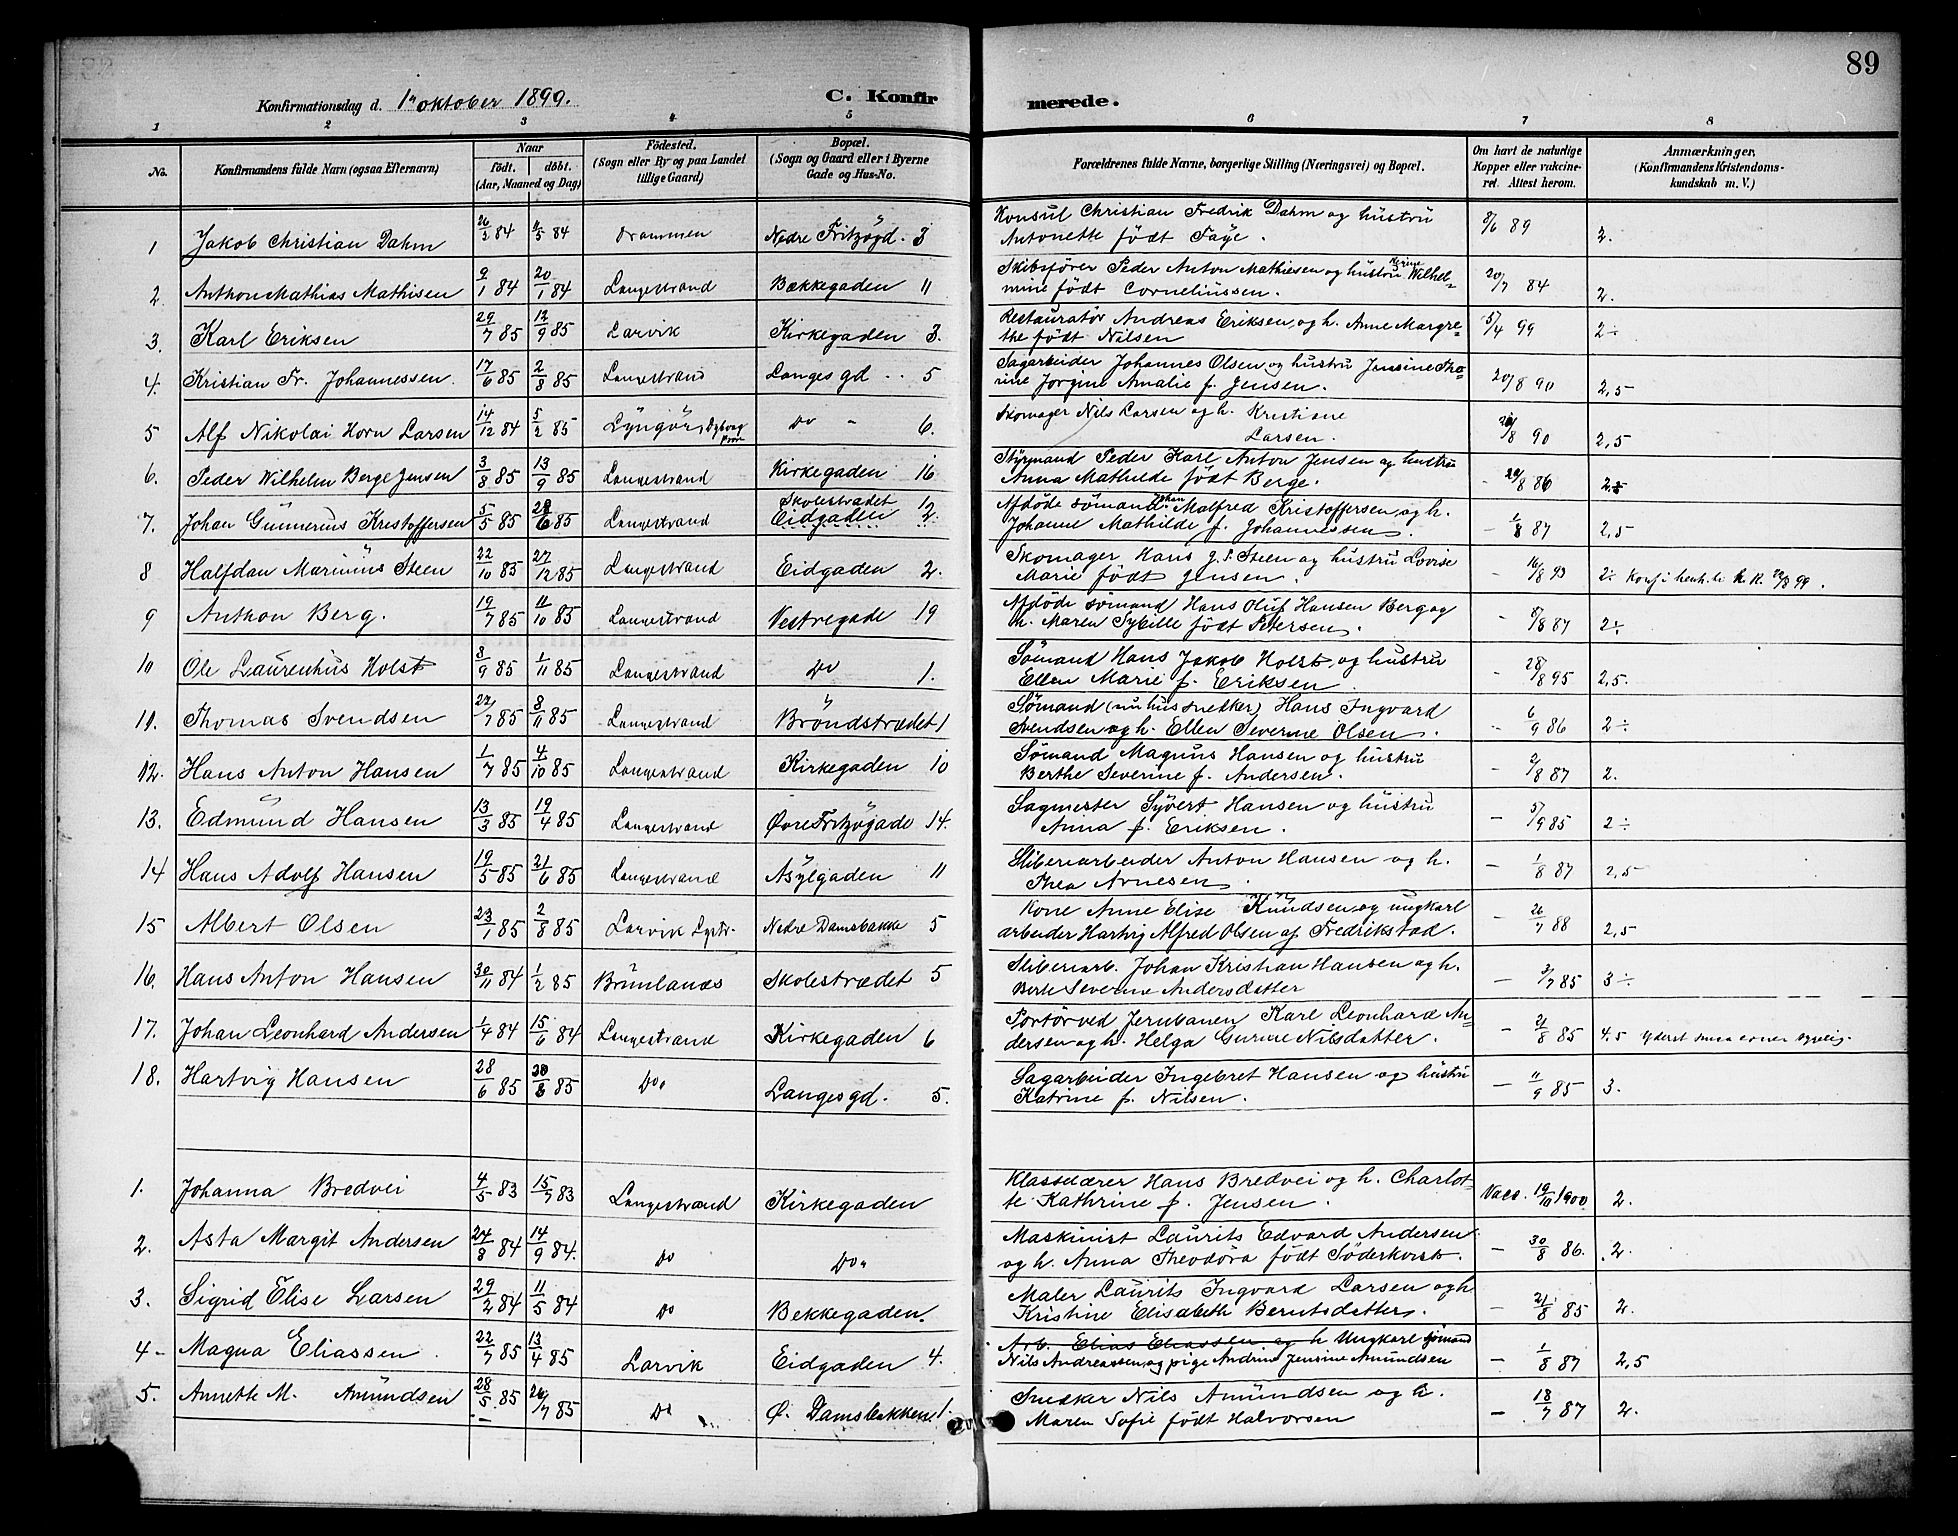 89
Konfirmationsdag d. 1. oktober 1899.
C. Konfirmerede.
1 2 3 4 5 6 7 8
No.
Konfirmandens fulde Navn (ogsaa Efternavn)
Naar
født. døbt.
(Aar, Maaned og Dag)
Fødested.
(Sogn eller By og paa Landet
tillige Gaard)
Bopæl.
(Sogn og Gaard eller i Byerne
Gade og Hus-No.
Forældrenes fulde Navne, borgerlige Stilling (Næringsvei) og Bopæl.
Om havt de naturlige
Kopper eller vakcine-
ret. Attest herom.
Anmærkninger,
(Konfirmandens Kristendoms-
kundskab m. V.)
1 Jakob Christian Dahm 26/2 84 84 Drammen Nedre Fritzøgd. 3 Konsul Christian Fredrik Dahm og hustru
Antonette født Faye. 8/6 89 2.
2. Anthon Mathias Mathisen 9/1 84 20/1 84 Langestrand Bækkegaden 11 Skibsfører Peder Anton Mathiesen og hustru Wilhel-
mine født Corneliussen. 20/7 84 2.
3. Karl Eriksen 29/7 85 12/9 85 Larvik Kirkegaden 3. Restauratør Andreas Eriksen og h. Anne Margre-
the født Nilsen 5/4 99 2÷
4. Kristian Fr. Johannessen. 17/6 85 2/8 85 Langestrand Langesgd 5 Sagarbeider Johannes Olsen og hustru Jensine Tho-
rine Jorgine Amalie f. Jensen. 20/8 90 2,5
5 Alf Nikolai Horn Larsen 14/12 84 5/2 85 Lyngør, Dybvag Do 6. Skomager Nils Larsen og h. Kristiane
Larsen. 8 90 2,5
6. Peder Wilhelm Berge Jensen 3/8 85 13/9 85 Langestrand Kirkegaden 16 Styrmand Peder Karl Anton Jensen og hustru
Anna Mathilde født Berge. 8 86
7. Johan Gunnerius Kristoffersen 5/5 85 28/6 85 Langestrand Skolestrædet 12
Eidgaden 2. Afdøde sømand Johan Malfred Kristoffersen og h.
Johanne Mathilde f. Johannessen. - 1/8 87 2,5
8 Halfdan Marinius Steen 22/10 85 27/12 85 Langestrand Eidgaden 2. Skomager Hans J. P. Steen og hustru Lovise
Marie født Jensen. - 16/8 93 2÷
9 Anthon Berg. 19/7 85 11/10 85 Langestrand Vestregade 19 Afdøde sømand Hans Oluf Hansen Berg og
h. Maren Sybille født Petersen. - 8/8 87 2÷
10 Ole Laurentius Holst 3/9 85 1/11 85 Langestrand Do 1. Sømand Hans Jakob Holst og hustru
Ellen Marie f. Eriksen - 28/8 95 2,5.
11. Thomas Svendsen 22/7 85 8/11 85 Langestrand Brøndstrædet 1 Sømand (nu hussnedker) Hans Ingvard
Svendsen og h. Ellen Severine Olsen. - 6/9 86 2÷
12. Hans Anton Hansen 1/7 85 4/10 85 Langestrand Kirkegaden 10 Sømand Magnus Hansen og hustru
Berthe Severine f. Andersen. - 2/8 87 2.
13. Edmund Hansen 13/3 85 19/4 85 Langestrand Øvre Fritzøgade 14. Sagmester Syvert Hansen og hustru
Anna f. Eriksen. - 5/9 85 2÷
14 Hans Adolf Hansen 19/5 85 21/6 85 Langestrand Asylgaden 11 Sliberiarbeider Anton Hansen og h.
Thea Arnesen. - 1/8 87 2,5
15 Albert Olsen 23/1 85 2/8 85 Larvik Lgstr. Nedre Damsbakke 5 Kone Anne Elise Knudsen og ungkarl
arbeider Hartvig Alfred Olsen af Fredrikstad. - 26/7 88 2,5
16. Hans Anton Hansen 30/11 84 1/2 85 Brunlanæs Skolestrædet 5 Sliberiarb. Johan Kristian Hansen og h.
Berte Severine Andersdatter - 3/7 85 3÷
17. Johan Leonhard Andersen 1/4 84 15/6 84 Langestrand Kirkegaden 6 Portør ved Jernbanen Karl Leonhard An-
dersen og h. Helga Gurine Nilsdatter. - 21/8 85 4,5 Yderst smaa evner sygelig.
18. Hartvig Hansen 28/6 85 85 Do. Langesgd. 5. Sagarbeider Ingebret Hansen og hustru
Katrine f. Nilsen. - 11/9 85 3.
1. Johanna Bredvei 4/5 83 15/7 83 Langestrand Kirkegaden Klasselærer Hans Bredvei og h. Charlot-
te Kathrine f. Jensen. Vacc. 19/10 1900 2.
2. Asta Margit Andersen 24/8 84 14/9 84. Do Do. Maskinist Laurits Edvard Andersen
og h. Anna Theodora født Söderkvist. - 30/8 86. 2.
3. Sigrid Elise Larsen 29/2 84 11/5 84 Do Bekkegaden. Maler Laurits Ingvard Larsen og h
Kristine Elisabeth Berntsdatter. - 21/8 85 2.
4 - Magna Eliassen 22/7 85 13/4 85 Larvik Eidgaden 4. Arb. Elias Eliassen og h Ungkarl sømand
Nils Andreassen og pige Andrine Jensine Amundsen - 1/8 87 2,5
5. Annette M. Amundsen 28/5 85 26/7 85 Do Ø. Damsbakken 1. Snedker Nils Amundsen og h.
Maren Sofie født Halvorsen - 18/7 87 2.